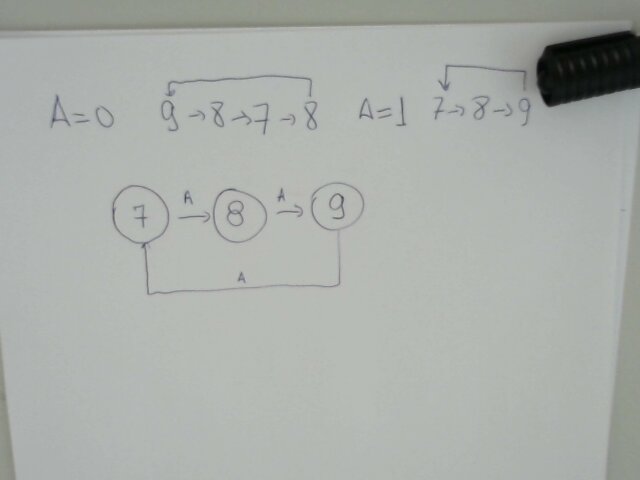 A=0 9→8→7→8 A=1 7→8→9
A A
7 → 8 → 9
A